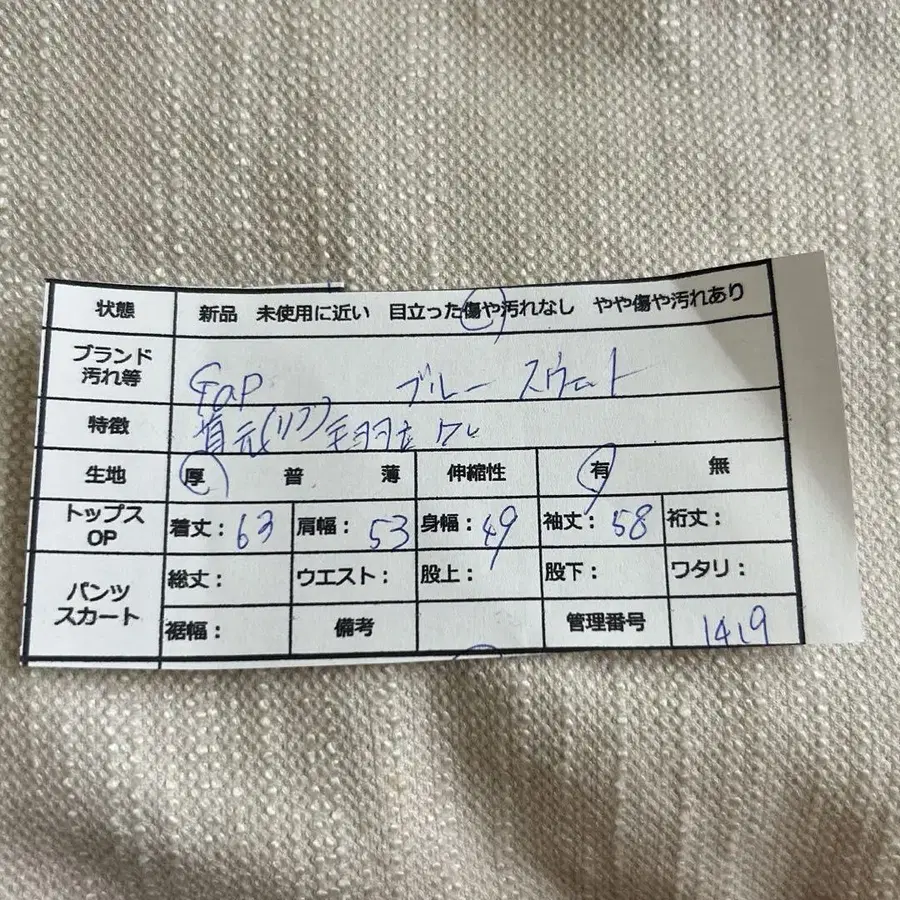 状態 新品 未使用に近い 目立った傷や汚れなし やや傷や汚れあり
ブランド
汚れ等 GaP ブルー スウェット
特徴 首元(リブ)毛羽立ち
生地 厚 普 薄 伸縮性 有 無
トップス
OP 着丈: 63 肩幅: 53 身幅: 49 袖丈: 58 裄丈:
パンツ
スカート 総丈: ウエスト: 股上: 股下: ワタリ:
裾幅: 備考 管理番号 1419